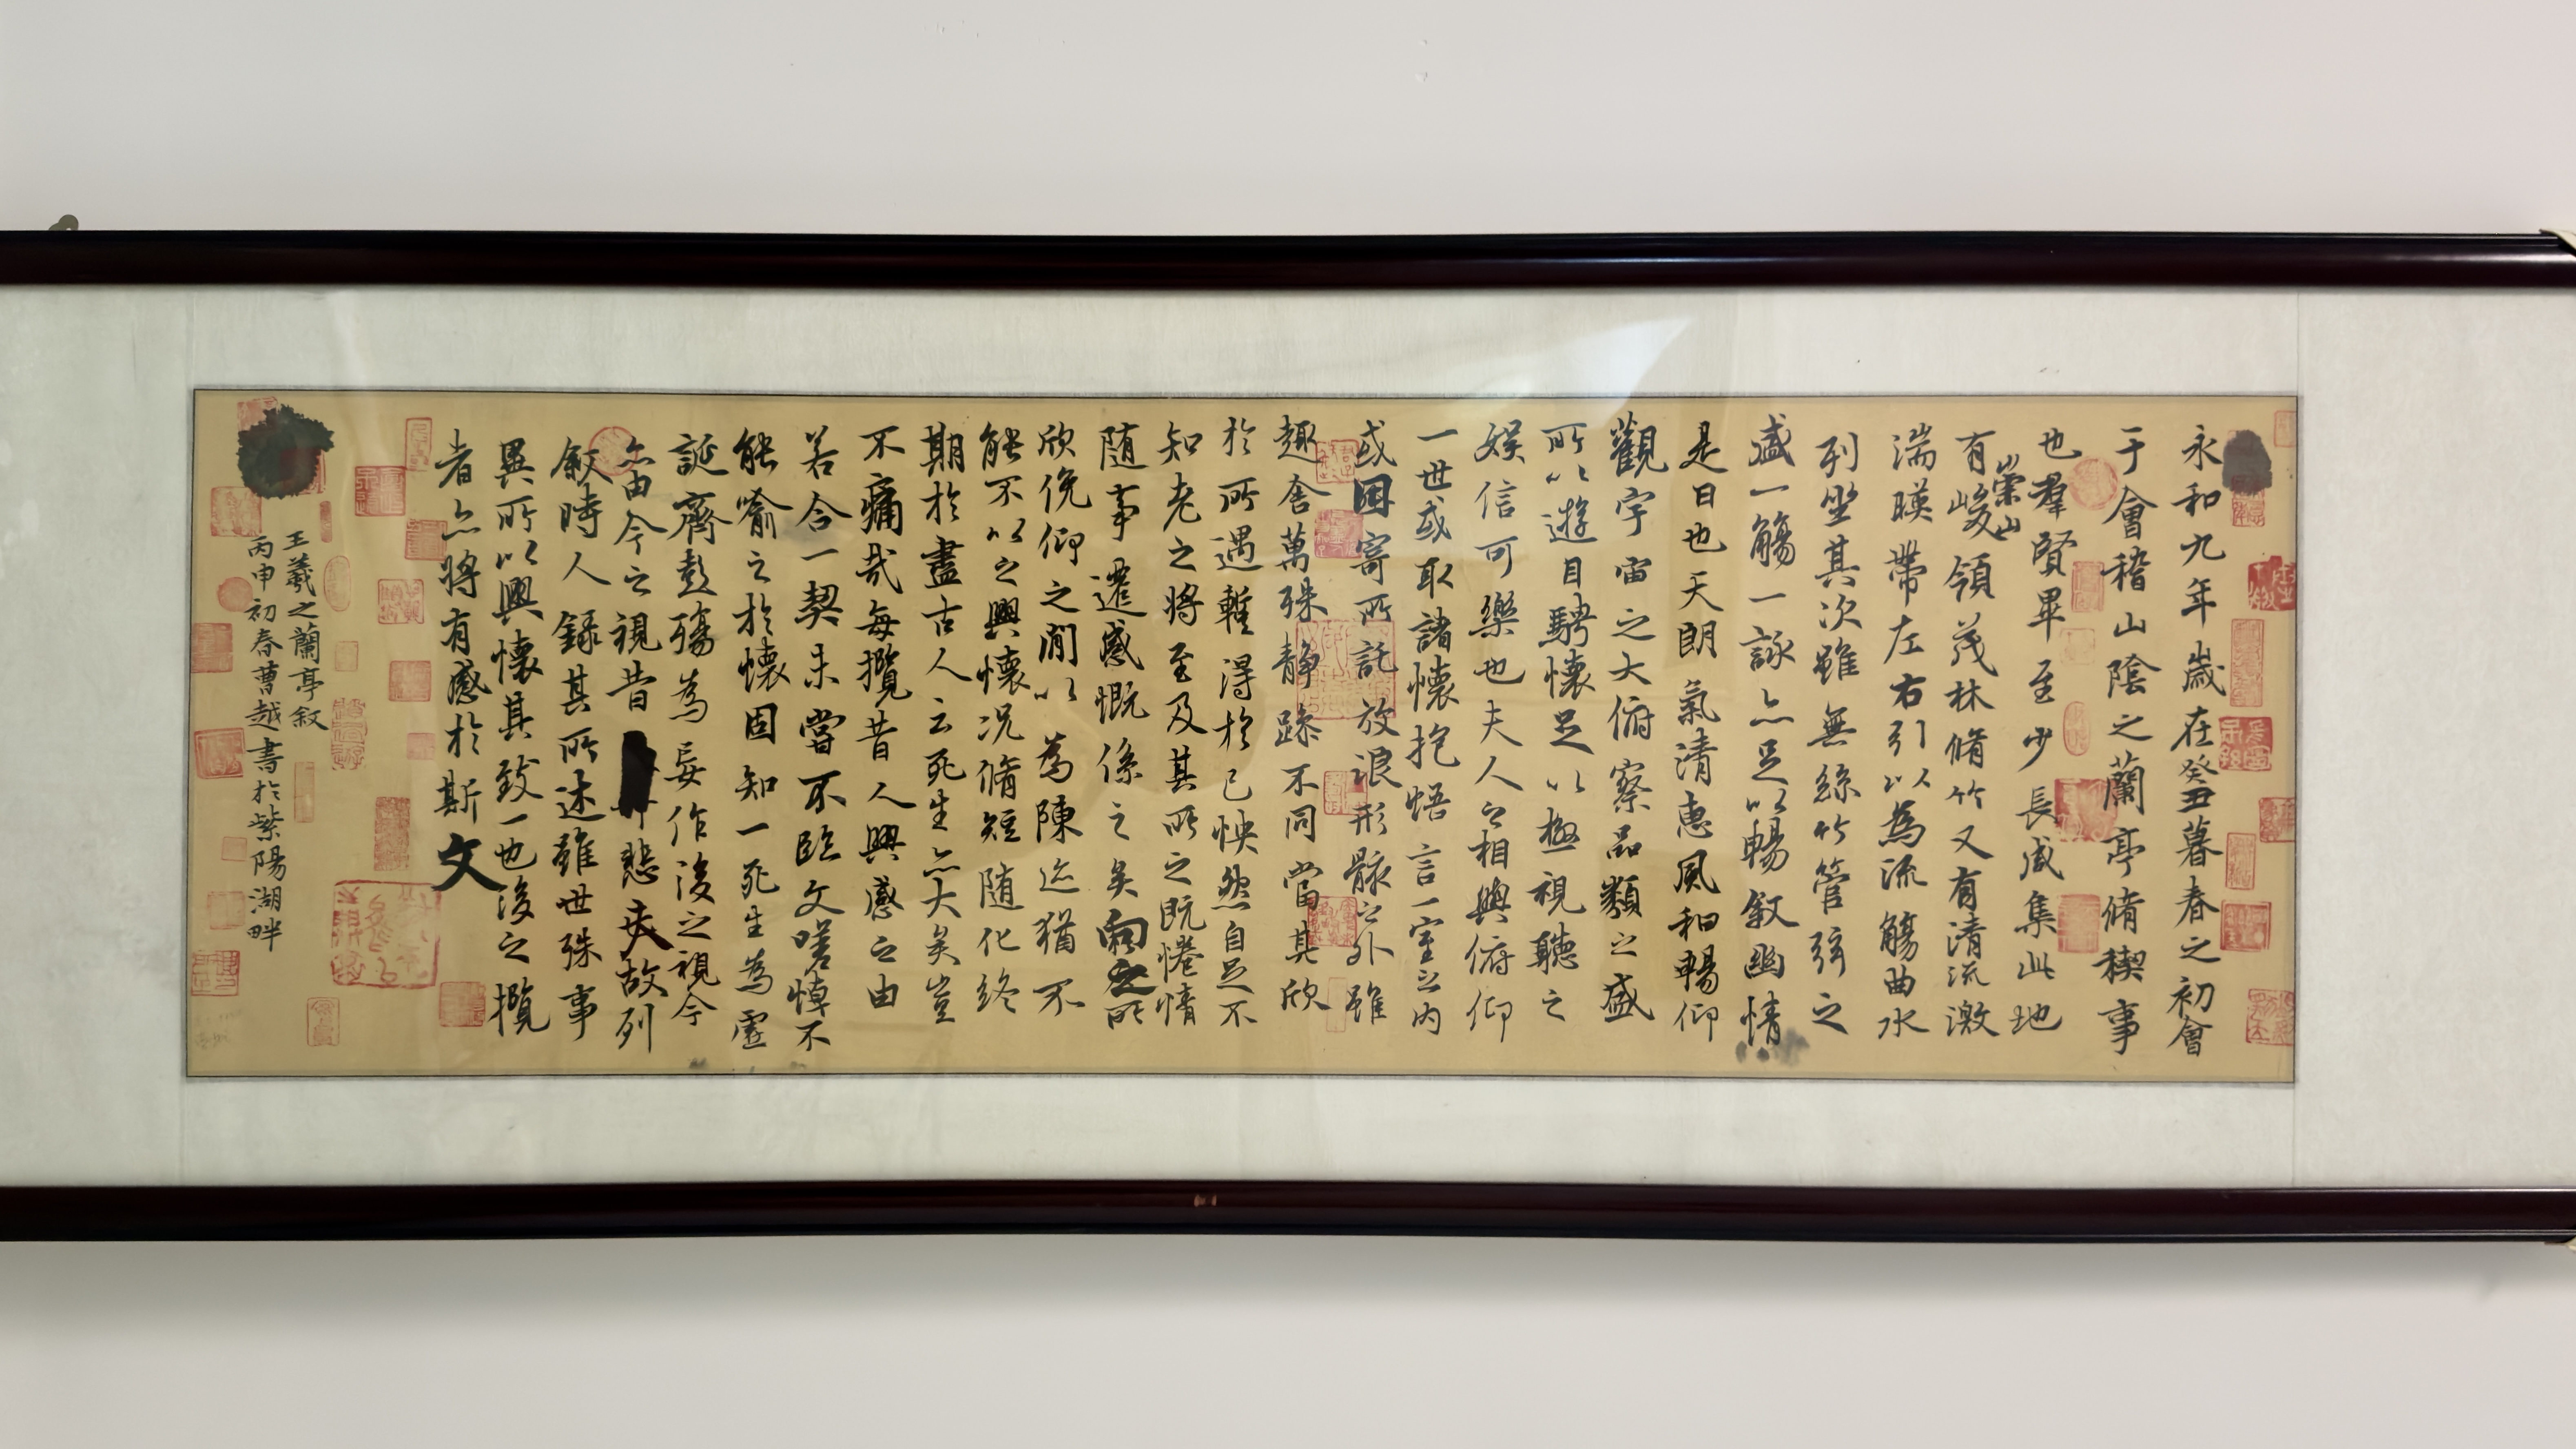 永和九年歲在癸丑暮春之初會
于會稽山陰之蘭亭脩稧事
也羣賢畢至少長咸集此地
有崇山峻領茂林脩竹又有清流激
湍暎帶左右引以為流觴曲水
列坐其次雖無絲竹管弦之
盛一觴一詠亦足以暢敘幽情
是日也天朗氣清惠風和暢仰
觀宇宙之大俯察品類之盛
所以遊目騁懷足以極視聽之
娛信可樂也夫人之相與俯仰
一世或取諸懷抱悟言一室之內
或因寄所託放浪形骸之外雖
趣舍萬殊静躁不同當其欣
於所遇暫得於己怏然自足不
知老之將至及其所之既惓情
随事遷感慨係之矣向之所
欣俛仰之閒以為陳迹猶不
能不以之興懷況脩短随化終
期於盡古人云死生亦大矣豈
不痛哉每攬昔人興感之由
若合一契未嘗不臨文嗟悼不
能喻之於懷固知一死生為虛
誕齊彭殤為妄作後之視今
亦由今之視昔悲夫故列
敘時人錄其所述雖世殊事
異所以興懷其致一也後之攬
者亦將有感於斯文
王羲之蘭亭敘
丙申初春曹越書於紫陽湖畔